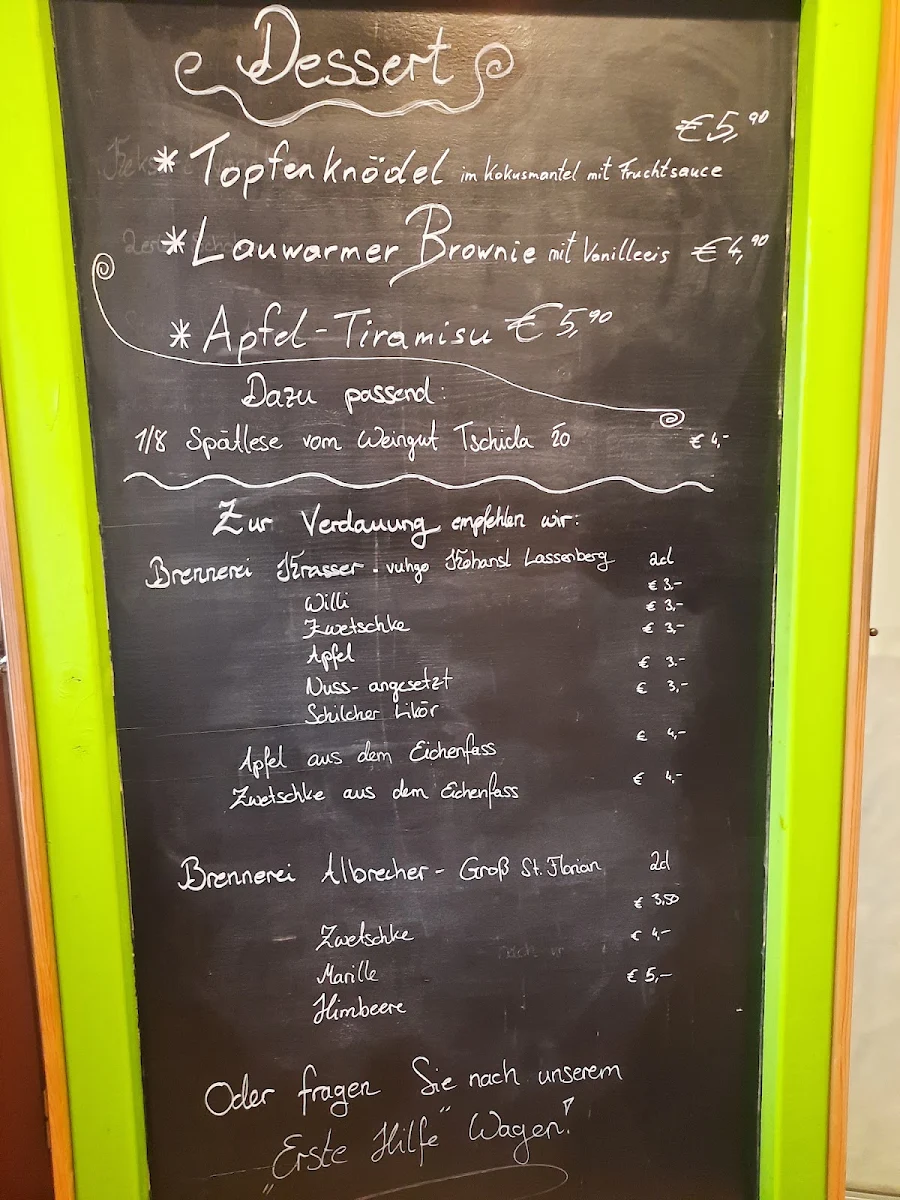 Dessert
€5,90
* Topfenknödel im Kokusmantel mit Fruchtsauce
* Lauwarmer Brownie mit Vanilleeis €4,90
* Apfel-Tiramisu €5,90
Dazu passend:
1/8 Spätlese vom Weingut Tschida 20 €4,-
Zur Verdauung empfehlen wir:
Brennerei Krasser - vulgo Kohansl Lassenberg 2cl
€ 3,-
Willi € 3,-
Zwetschke € 3,-
Apfel € 3.-
Nuss- angesetzt € 3,-
Schilcher Likör
€ 4,-
Apfel aus dem Eichenfass
€ 4,-
Zwetschke aus dem Eichenfass
Brennerei Albrecher - Groß St. Florian 2cl
€ 3,50
Zwetschke € 4,-
Marille € 5,-
Himbeere
Oder fragen Sie nach unserem
„Erste Hilfe" Wagen!